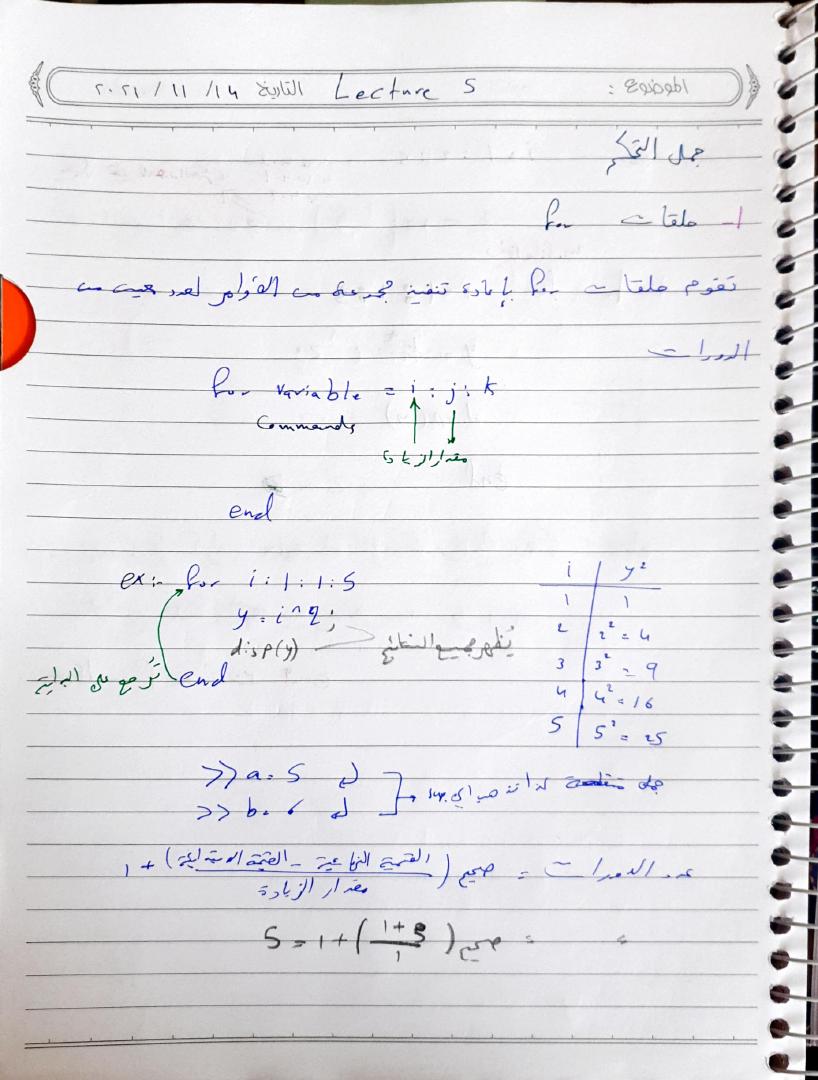 الموضوع : Lecture 5 التاريخ ١٤/ ١١ / ٢٠٢١
جمل التحكم
١- حلقات for
تقوم حلقات for بإعادة تنفيذ مجموعة من الأوامر لعدد معين من
الدورات
for variable = i : j : k
Commands
مقدار الزيادة
end
ex:- for i : 1 : 1 : 5
y = i ^ 2 ;
disp(y) يُظهر جميع النتائج
end ترجع على البداية
i | y²
1 | 1
2 | 2² = 4
3 | 3² = 9
4 | 4² = 16
5 | 5² = 25
>> a = 5 ↲
>> b = 6 ↲
جمل
عدد الدورات = صحيح (القيمة النهائية - القيمة الابتدائية / مقدار الزيادة) + ١
〃 = صحيح (1+5 / 1) + 1 = 5